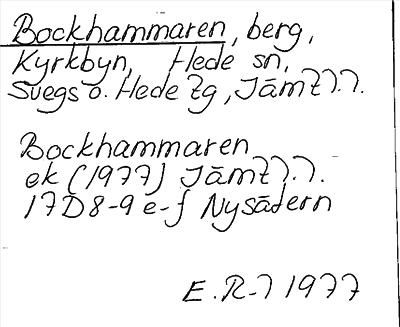 Bockhammaren, berg,
Kyrkbyn, Hede sn,
Svegs o. Hede tg, Jämtl.l.
Bockhammaren
ek (1977) Jämtl.l.
17D8-9 e-f Nysätern
E.R-l 1977